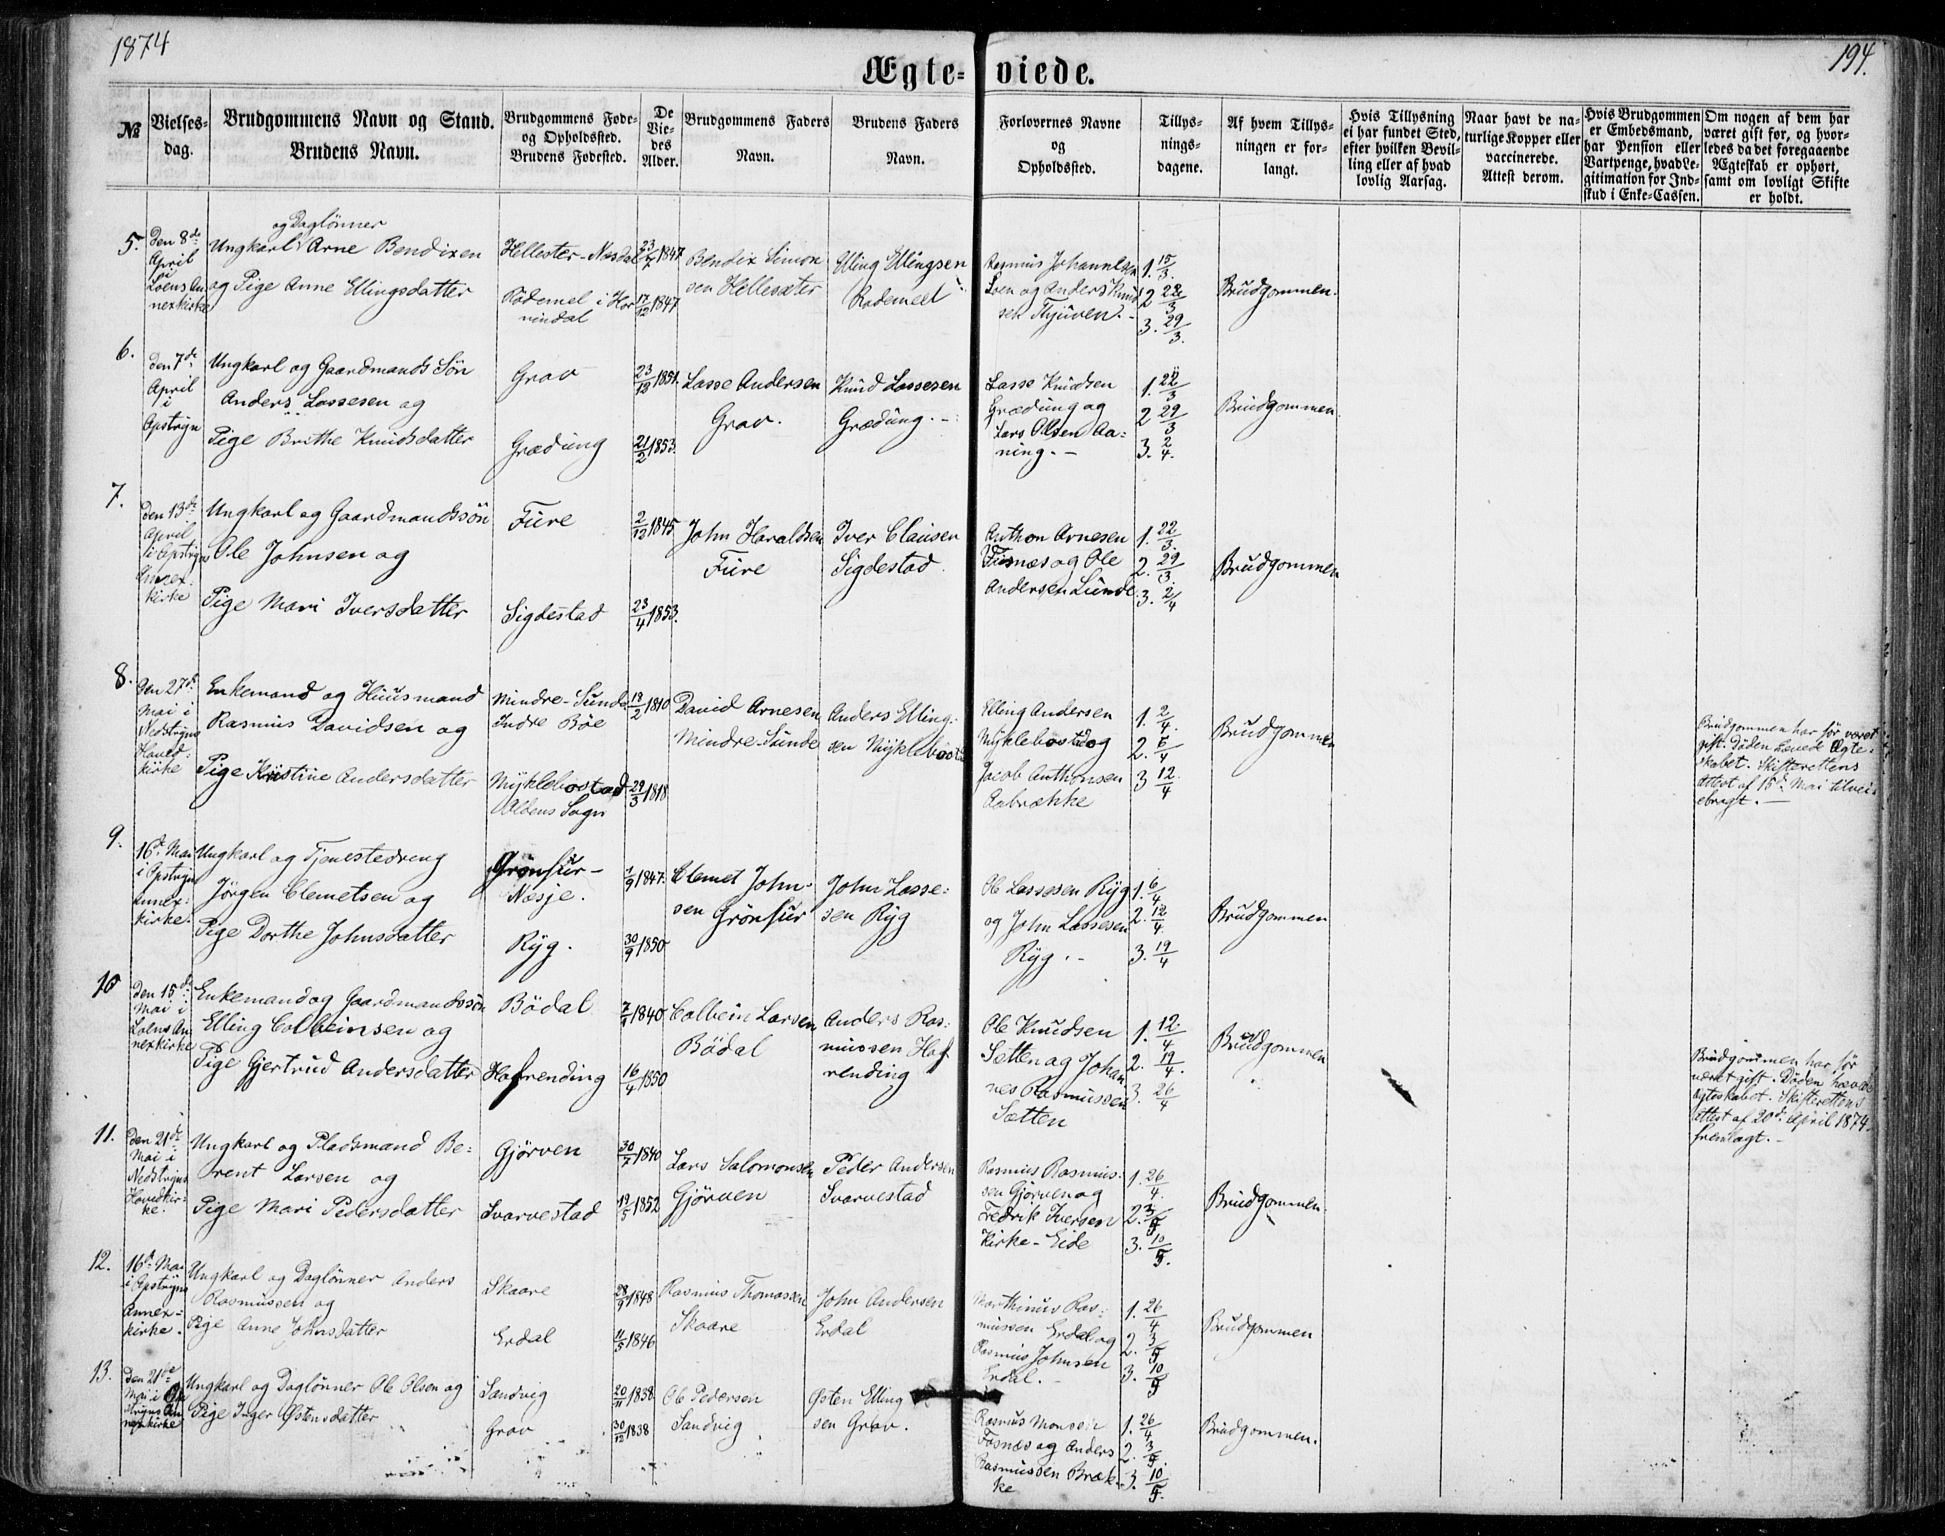 1874
194.
Ægte-viede.
№
Vielses-dag.
Brudgommens Navn og Stand.
Brudens Navn.
Brudgommens Føde- og Opholdssted.
Brudens Fødested.
De Viedes Alder.
Brudgommens Faders Navn.
Brudens Faders Navn.
Forlovernes Navne og Opholdssted.
Tillysningsdagene.
Af hvem Tillysningen er forlangt.
Hvis Tillysning ei har fundet Sted, efter hvilken Bevilling eller af hvad lovlig Aarsag.
Naar havt de naturlige Kopper eller vaccinerede. Attest derom.
Hvis Brudgommen er Embedsmand, har Pension eller Vartpenge, hvad Legitimation for Indskud i Enke-Cassen.
Om nogen af dem har været gift før, og hvorledes da det foregaaende Ægteskab er ophørt, samt om lovligt Skifte er holdt.
5. Den 8de April i Loens Annexkirke
og Daglønner
Ungkarl Arne Bendixen
og Pige Anne Ellingsdatter
Hellesæter-Næsdal 23/7 1847
Rødemel i Hornindal 17/12 1847
Bendix Simonsen Hellesæter
Elling Ellingsen Rødemell
Rasmus Johannesen Loen og Anders Knudsen Thjuven.
1. 15/3. 2 22/3 3. 29/3.
Brudgommen.
6. Den 7de April i Opstryn
Ungkarl og Gaardmands Søn
Anders Lassesen og
Pige Brithe Knudsdatter
Grov 23/12 1851.
Grædung 21/2 1853.
Lasse Andersen Grov.
Knud Lassesen Grædung.
Lasse Knudsen Grædung og Lars Olsen Aaning.
1. 22/3 2 29/3 3. 2/4.
Brudgommen.
7. Den 13de April i Opstryns Annexkirke
Ungkarl og Gaardmandssøn
Ole Johnsen og
Pige Mari Iversdatter
Fure 2/12 1845.
Sigdestad 23/4 1853.
John Haraldsen Fure
Iver Clausen Sigdestad.
Anthon Arnesen Fosnæs og Ole Andersen Lunde.
1. 22/3. 2. 29/3. 3. 2/4
Brudgommen
8. Den 27de Mai i Nedstryns Hovedkirke
Enkemand og Huusmand
Rasmus Davidsen og
Pige Kristine Andersdatter
Mindre-Sunde Indre Bøe 13/2 1810
Myklebostad Olbens Sogn 29/3 1818
David Arnesen Mindre-Sunde
Anders Ellingsen Myklebostad
Elling Andersen Myklebostad og Jacob Anthonsen Aabrække
1. 2/4. 2. 5/4 3 12/4
Brudgommen
Brudgommen har før været gift. Døden hævede Ægteskabet. Skifterettens Attest af 15de Mai tilveiebragt.
9. 16de Mai i Opstryns Annexkirke.
Ungkarl og Tjenestedreng
Jørgen Clemetsen og
Pige Dorthe Johnsdatter
Grønfur-Næsje. 1/9 1847.
Ryg. 30/9 1850.
Clemet Johnsen Grønfur
John Lassesen Ryg
Ole Lassesen Ryg og John Lassesen Ryg.
1. 6/4. 2. 12/4. 3. 19/4
Brudgommen
10 Den 15de Mai i Loens Annexkirke
Enkemand og Gaardmandssøn
Elling Colbeinsen og
Pige Gjertrud Andersdatter
Bødal 1840
Hogrending 16/4 1850
Colbein Larsen Bødal
Anders Rasmussen Hogrending
Ole Knudsen Sætten og Johannes Rasmussen Sætten
1. 12/4 2. 19/4. 3. 26/4
Brudgommen
Brudgommen har før været gift. Døden hævede Ægteskabet. Skifterettens attest af 20de April 1874 fremlagt.
11. Den 21de Mai i Nedstryns Hovedkirke.
Ungkarl og Pladsmand Berent Larsen og
Pige Mari Pedersdatter
Gjørven 30/7 1840
Svarvestad 19/5 1852
Lars Salomonsen Gjørven
Peder Andersen Svarvestad
Rasmus Rasmussen Gjørven og Fredrik Iversen Kirke-Eide
1. 26/4. 2. 3/5 3. 10/5.
Brudgommen.
12. 16de Mai i Opstryns Annexkirke.
Ungkarl og Daglønner Anders Rasmussen og
Pige Anne Johnsdatter
Skaare 28/9 1848
Erdal 11/5 1846
Rasmus Thomassen Skaare
John Andersen Erdal
Marthinus Rasmussen Erdal og Rasmus Johnsen Erdal.
1. 26/4 2. 3/5 3. 10/5
Brudgommen
13. Den 21de Mai i Opstryns Annexkirke
Ungkarl og Daglønner Ole Olsen og
Pige Inger Østensdatter
Sandvig 20/11 1858
Grov 30/12 1838
Ole Pedersen Sandvig
Østen Ellingsen Grov.
Rasmus Monsen Fosnæs og Anders Rasmussen Brække
1. 26/4 2. 3/5. 3. 10/5.
Brudgommen.